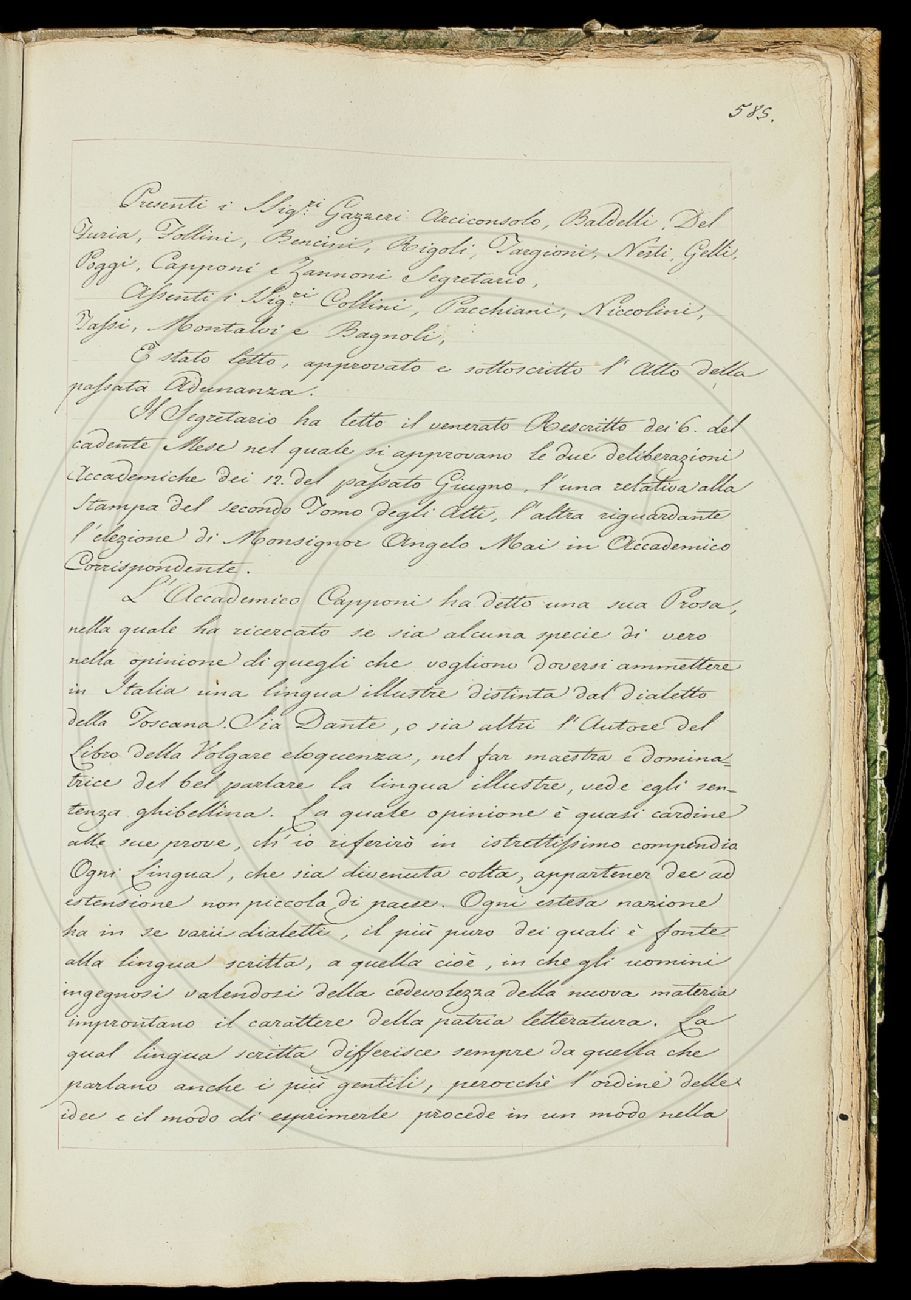 585.
Presenti i SSig.ri Gazzeri Arciconsolo, Baldelli, Del
Furia, Follini, Bencini, Rigoli, Targioni, Nesti, Gelli,
Poggi, Capponi e Zannoni Segretario,
Assenti i SSig.ri Collini, Pacchiani, Niccolini,
Fassi, Montalvi e Bagnoli,
È stato letto, approvato e sottoscritto l'Atto della
passata Adunanza.
Il Segretario ha letto il venerato Rescritto dei 6. del
cadente Mese nel quale si approvano le due deliberazioni
Accademiche dei 12. del passato Giugno, l'una relativa alla
Stampa del secondo Tomo degli Atti, l'altra riguardante
l'elezione di Monsignor Angelo Mai in Accademico
Corrispondente.
L'Accademico Capponi ha detto una sua Prosa,
nella quale ha ricercato se sia alcuna specie di vero
nella opinione di quegli che vogliono doversi ammettere
in Italia una lingua illustre distinta dal dialetto
della Toscana. Sia Dante, o sia altri l'Autore del
Libro della Volgare eloquenza, nel far maestra e domina=
trice del bel parlare la lingua illustre, vede egli sen=
tenza ghibellina. La quale opinione è quasi cardine
alle sue prove, ch'io riferirò in istrettissimo compendio
Ogni Lingua, che sia divenuta colta, appartener dee ad
estensione non piccola di paese. Ogni estesa nazione
ha in se varii dialetti, il più puro dei quali è fonte
alla lingua scritta, a quella cioè, in che gli uomini
ingegnosi valendosi della cedevolezza della nuova materia
improntano il carattere della patria letteratura. La
qual lingua scritta differisce sempre da quella che
parlano anche i più gentili, perocchè l'ordine delle
idee e il modo di esprimerle procede in un modo nella